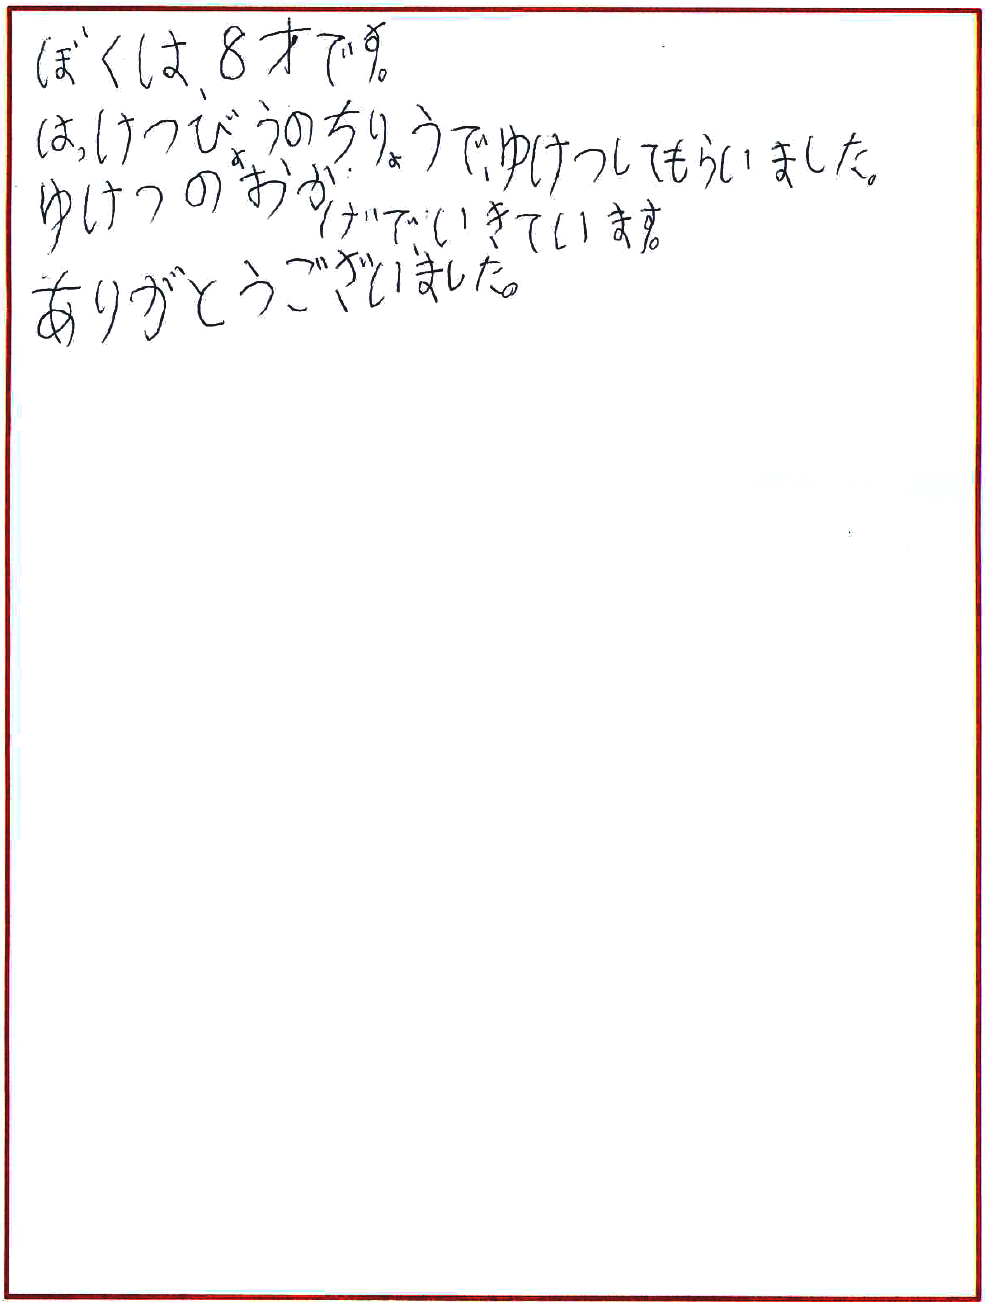 ぼくは、8才です。
はっけつびょうのちりょうで、ゆけつしてもらいました。
ゆけつのおかげで、いきています。
ありがとうございました。